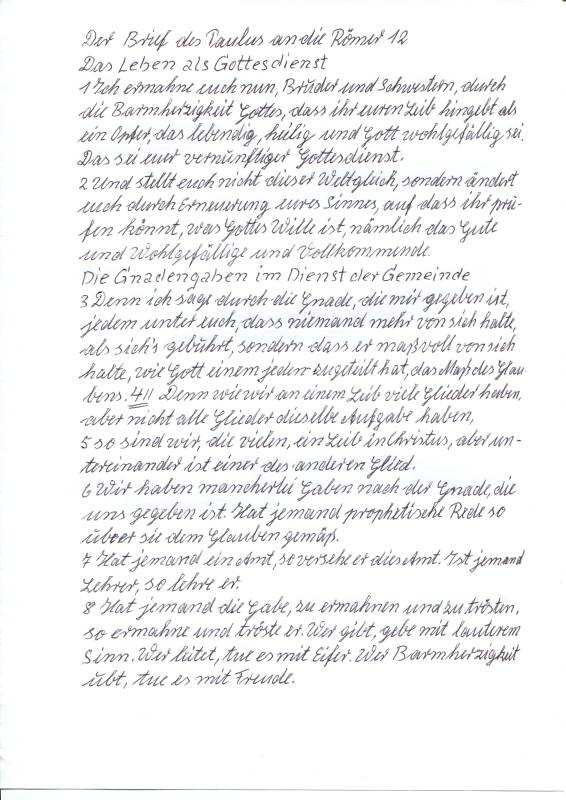 Der Brief des Paulus an die Römer 12
Das Leben als Gottesdienst
1 Ich ermahne euch nun, Brüder und Schwestern, durch
die Barmherzigkeit Gottes, dass ihr euren Leib hingebt als
ein Opfer, das lebendig, heilig und Gott wohlgefällig sei.
Das sei euer vernünftiger Gottesdienst.
2 Und stellt euch nicht dieser Welt gleich, sondern ändert
euch durch Erneuerung eures Sinnes, auf dass ihr prü-
fen könnt, was Gottes Wille ist, nämlich das Gute
und Wohlgefällige und Vollkommende.
Die Gnadengaben im Dienst der Gemeinde
3 Denn ich sage durch die Gnade, die mir gegeben ist,
jedem unter euch, dass niemand mehr von sich halte,
als sich's gebührt, sondern dass er maßvoll von sich
halte, wie Gott einem jeden zugeteilt hat, das Maß des Glau-
bens. 4 || Denn wie wir an einem Leib viele Glieder haben,
aber nicht alle Glieder dieselbe Aufgabe haben,
5 so sind wir, die vielen, ein Leib in Christus, aber un-
tereinander ist einer des anderen Glied.
6 Wir haben mancherlei Gaben nach der Gnade, die
uns gegeben ist. Hat jemand prophetische Rede so
über sie dem Glauben gemäß.
7 Hat jemand ein Amt, so versehe er dies Amt. Ist jemand
Lehrer, so lehre er.
8 Hat jemand die Gabe, zu ermahnen und zu trösten,
so ermahne und tröste er. Wer gibt, gebe mit lauterem
Sinn. Wer leitet, tue es mit Eifer. Wer Barmherzigkeit
übt, tue es mit Freude.